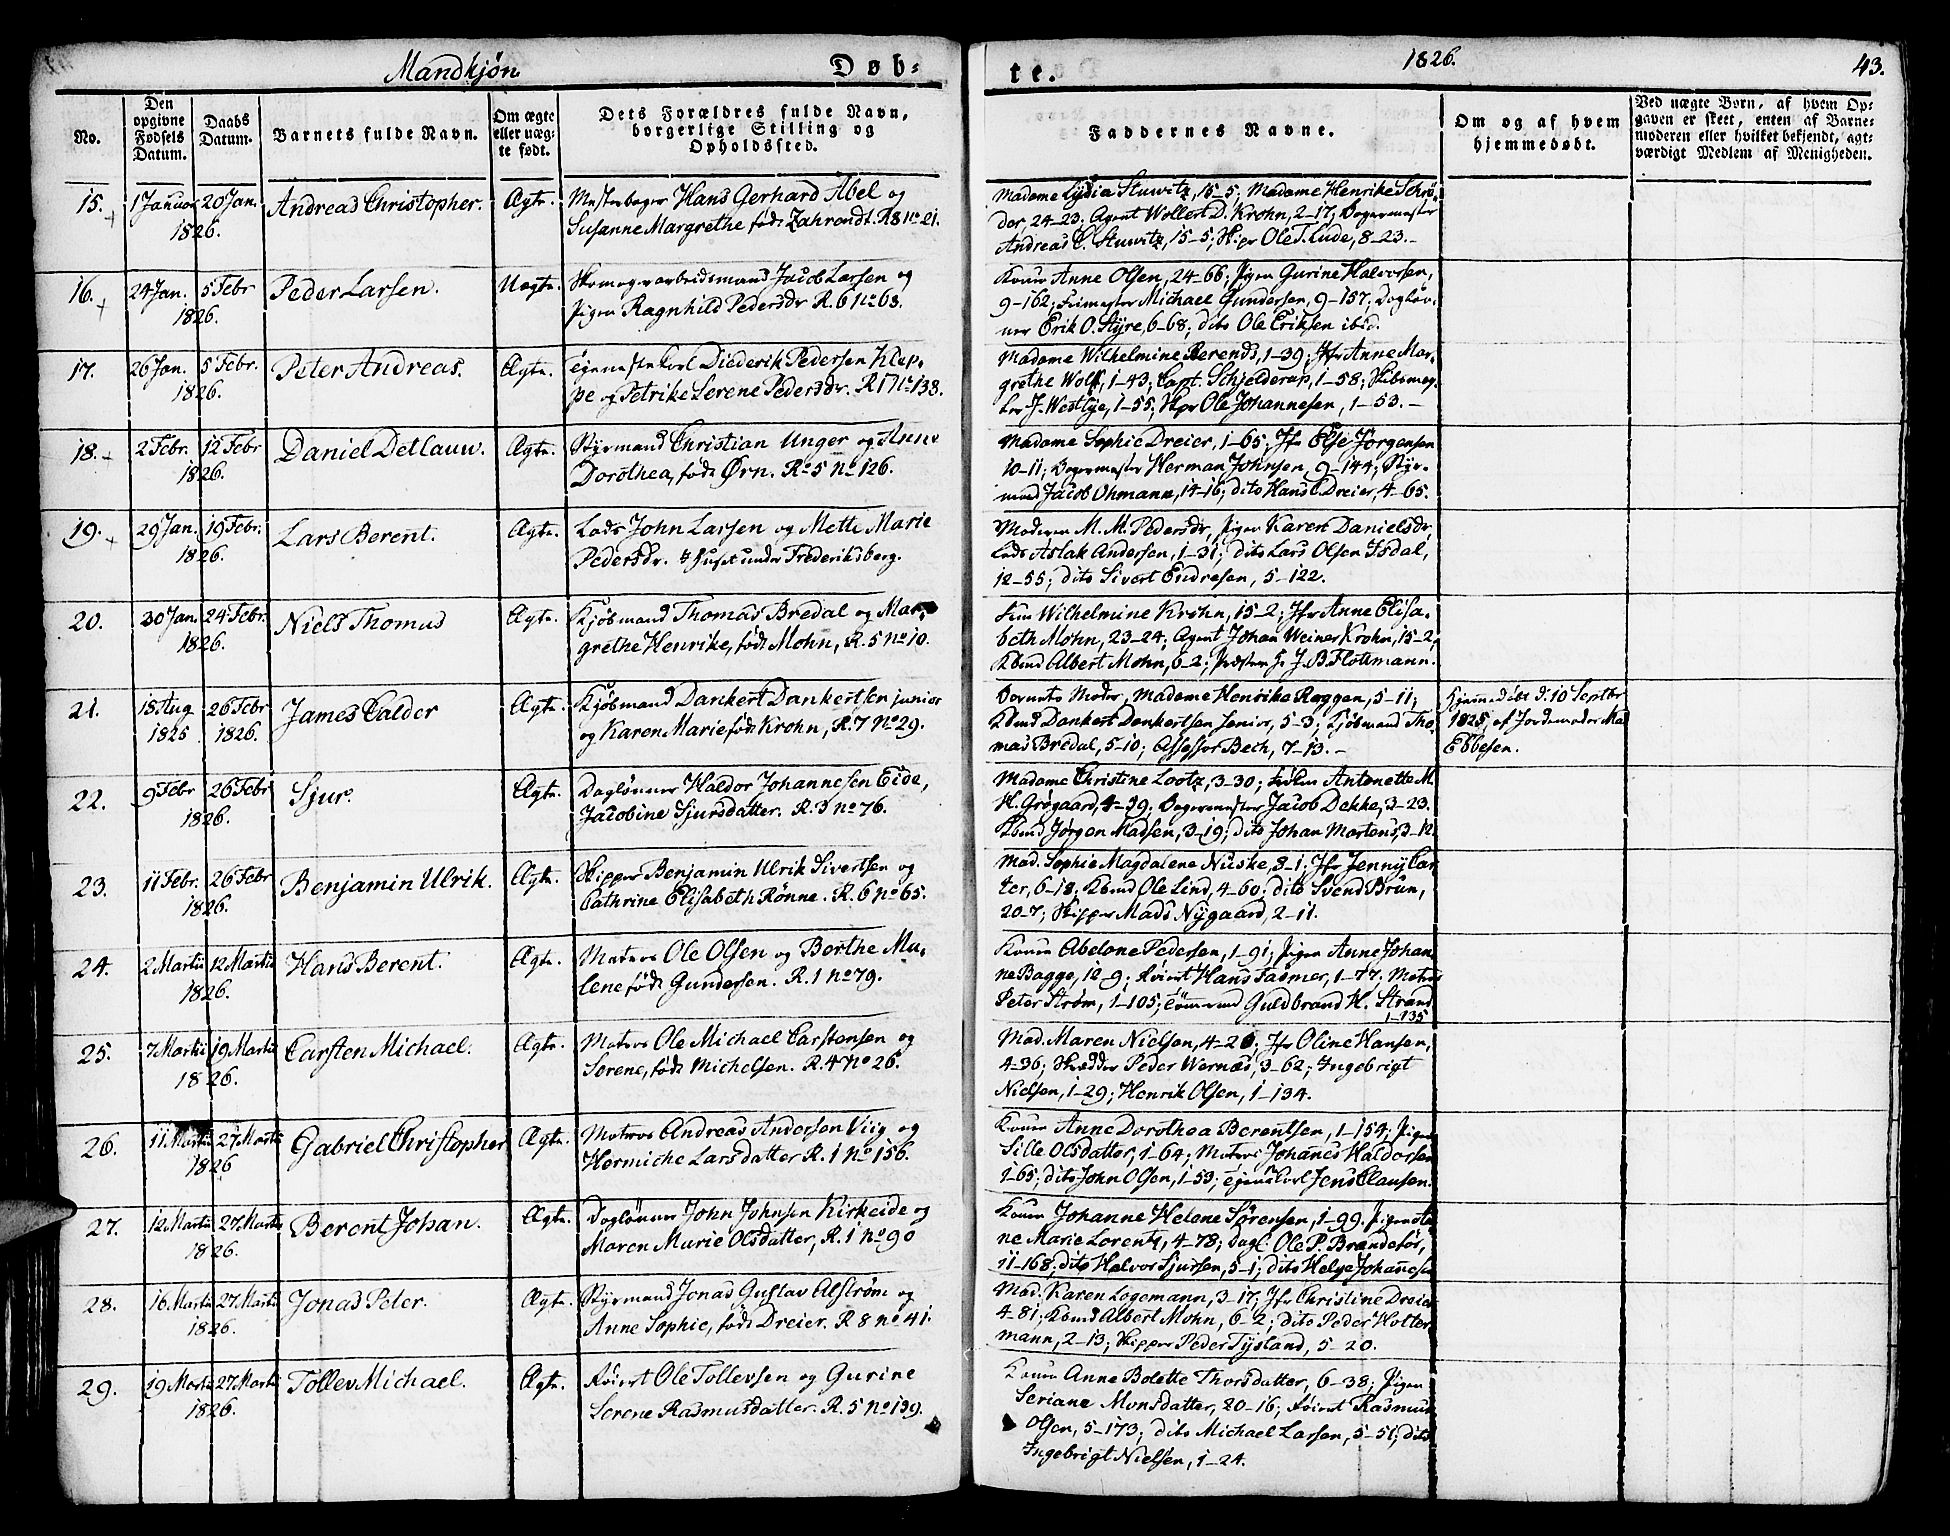 Mandkjøn Døb-
te. 1826. 43.
No. Den opgivne Fødsels Datum. Daabs Datum. Barnets fulde Navn. Om ægte eller uægte født. Dets Forældres fulde Navn, borgerlige Stilling og Opholdssted.
Faddernes Navne. Om og af hvem hjemmedøbt. Ved uægte Børn, af hvem Opgaven er skeet, enten af Barnemoderen eller hvilket bekjendt, agtværdigt Medlem af Menigheden.
15. 1 Januar 20 Jan. Andreas Christopher. Ægte. Mesterbager Hans Gerhard Abel og
1826. Susanne Margrethe født Zahrendt. R 8 No 21.
Madame Lydia Stuwitz, 15-5; Madame Henrike Schrø-
der 24-23. Agent Wollert D. Krohn, 2-17; Bagermester
Andreas C. Stuwitz, 15-5; Skipr Ole T. Lude, 8-23.-
16. 24 Jan. 5 Febr Peder Larsen. Uægte. Skomagerarbeidsmand Jacob Larsen og
1826. Pigen Ragnhild Pedersdr R. 6 No 68.
Konen Anne Olsen, 24-66; Pigen Gurine Halvorsen,
9-162; Feimester Michael Gundersen, 9-157; Dagløn-
ner Erik O. Styre, 6-68; dito Ole Eriksen ibid.
17. 26 Jan. 5 Febr. Peter Andreas. Ægte. Tjenestekarl Diederik Pedersen Klep-
1826. pe og Petrike Serene Pedersdr. R 1 No 138.
Madame Wilhelmine Berends, 1-39; Jfr Anne Mar-
grethe Wolff, 1-43; Capt. Schjelderup, 1-58; Skibsmæg-
ler J. Westlye, 1-55; Skpr Ole Johannesen, 1-53.-
18. 2 Febr. 12 Febr Daniel Detlauw. Ægte. Styrmand Christian Unger og Anne
1826. Dorothea, født Ørn. R. 5 No 126.
Madame Sophie Dreier, 1-65; Jfr Else Jørgensen
10-11; Bagermester Herman Johnsen, 9-144; Styr-
mand Jacob Ohmann, 14-16; dito Hans C. Dreier, 4-65.
19. 29 Jan. 19 Febr. Lars Berent. Ægte. Lods John Larsen og Mette Marie
1826. Pedersdr. Huset under Frederiksberg.
Moderen M. M. Pedersdr, Pigen Karen Danielsdr,
Lods Aslak Andersen, 1-31; dito Lars Olsen Isdal,
12-55; dito Sivert Endresen, 5-122.
20. 30 Jan. 24 Febr. Niels Thomas Ægte. Kjøbmand Thomas Bredal og Mar-
1826. grethe Henrike, født Mohn, R. 5 No 10.
Wilhelmine Krohn, 15-2; Jfr Anne Elisa-
beth Mohn, 23-24; Agent Johan Weiner Krohn, 15-2;
Kbmd Albert Mohn, 6-2; Præsten J. B Flottmann.
21. 18 Aug 26 Febr James Calder Ægte. Kjøbmand Dankert Dankertsen junior
1825 1826. og Karen Marie født Krohn, R. 7 No 29.
Barnets Moder, Madame Henrike Roggen, 5-11;
Kbmd Dankert Dankertsen senior, 5-3; Kjøbmand Tho-
mas Bredal, 5-10; Assessor Bech, 7-13.-
Hjemmedøbt d. 10 Septbr
1825, af Jordemoder Ma
Ebbesen.
22. 9 Febr 26 Febr Sjur. Ægte. Daglønner Haldor Johannesen Eide,
1826. Jacobine Sjursdatter. R. 3 No 76.
Madame Christine Lootz, 3-30; Frøken Antonette M.
H. Grøgaard, 4-39; Bagermester Jacob Dekke, 3-23.
Kbmd Jørgen Madsen, 3-19; dito Johan Martens, 3-12.
23. 11 Febr. 26 Febr Benjamin Ulrik. Ægte. Skipper Benjamin Ulrik Sivertsen og
1826. Cathrine Elisabeth Rønne. R. 6 No 65.
Mad. Sophie Magdalene Nüske, 8-1; Jfr Jenny Car-
ter, 6-18; Kbmd Ole Lind, 4-60; dito Svend Brun,
20-7; Skipper Mads Nygaard, 2-11.
24. 2 Martii 12 Martii Hans Berent. Ægte. Matros Ole Olsen og Berthe Ma-
1826. lene født Gundersen. R. 1 No 79.
Konen Abelone Pedersen, 1-91; Pigen Anne Johan-
ne Bagge, 12-9; Avient Hans Fasmer, 1-77; Matros
Peter Strøm, 1-105; Tømmermand Guldbrand H. Strand
1-135
25. 7 Martii 19 Martii Carsten Michael. Ægte. Matros Ole Michael Carstensen og
1826. Serene, født Michelsen. R. 4 No 26.
Mad. Maren Nielsen, 4-26; Jfr Oline Hansen,
4-36; Skrædder Peder Wernæs, 3-62; Ingebrigt
Nielsen, 1-29; Henrik Olsen, 1-134.
26. 11 Martii 27 Martii Gabriel Christopher Ægte. Matros Andreas Andersen Viig og
1826 Hermiche Larsdatter R. 1 No 156.
Konen Anne Dorothea Berentsen, 1-154; Pigen
Sille Olsdatter, 1-64; Matros Johanes Haldorsen
1-65; dito John Olsen, 1-53; Tjenestekarl Jens Clausen.
27. 12 Martii 27 Martii Berent Johan. Ægte. Daglønner John Johnsen Kirkeide og
1826. Maren Marie Olsdatter, R. 1 No 90
Konen Johanne Helene Sørensen, 1-99. Pigen
ne Marie Lorentz, 4-78; dagl. Ole P. Brandesør,
11-168; dito Halvor Sjursen, 5-1; dito Helge Johannesen
28. 16 Martii 27 Martii Jonas Peter. Ægte. Styrmand Jonas Gustav Alstrøm og
1826. Anne Sophie, født Dreier. R 8 No 41.
Mad. Karen Logemann, 3-17; Jfr Christine Dreier
4-81; Kbmd Albert Mohn, 6-2; dito Peder Holter-
mann, 2-13; Skipper Peder Tysland, 5-20.
29. 19 Martii 27 Martii Tollev Michael. Ægte. Avient Ole Tollevsen og Gurine
1826. Serene Rasmusdatter. R. 5 No 139.
Konen Anne Bolette Thorsdatter, 6-38; Pigen
Seriane Monsdatter, 20-16; Avient Rasmus
Olsen, 5-173; dito Michael Larsen, 5-51; dito
Ingebrigt Nielsen, 1-24.